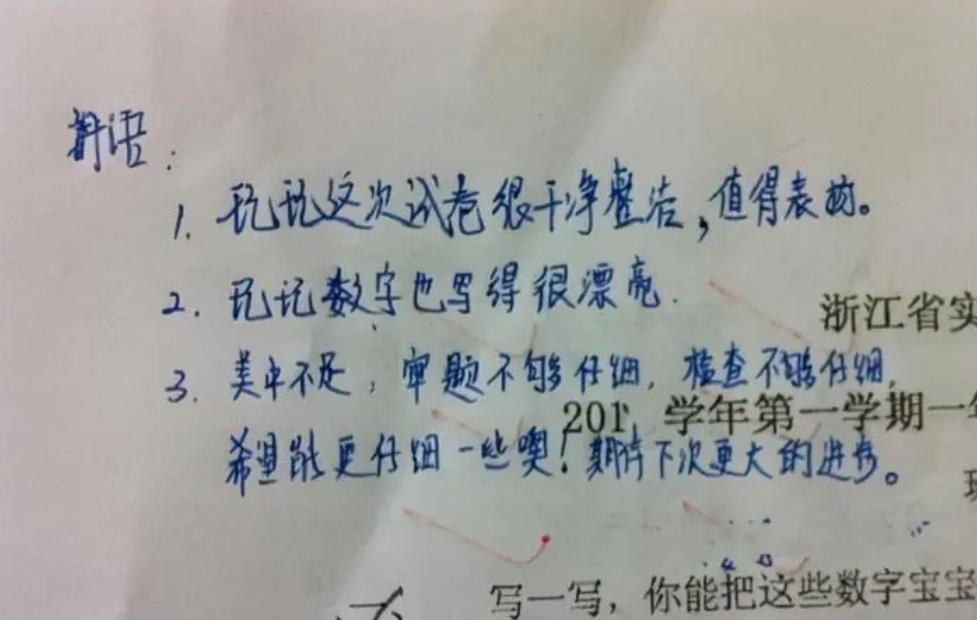 评语：
1. 玩玩这次试卷很干净整洁，值得表扬。
2. 玩玩数字也写得很漂亮.
3. 美中不足，审题不够仔细，检查不够仔细，
希望能更仔细一些噢！期待下次更大的进步。
浙江省实
201 学年第一学期一年
写一写，你能把这些数字宝宝